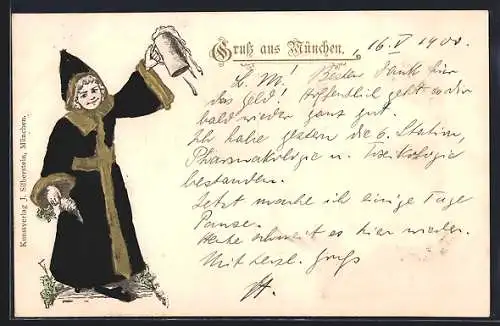 Gruß aus München.
, 16. V 1900.
L. M! Besten Dank für
das Geld! Hoffentlich geht es dir
bald wieder ganz gut.
Ich habe gestern die 6. Station,
Pharmakologie u. Toxikologie
bestanden.
Jetzt mache ich einige Tage
Pause.
Heute schneit es hier wieder.
Mit herzl. Gruß
Kunstverlag J. Silberstein, München.